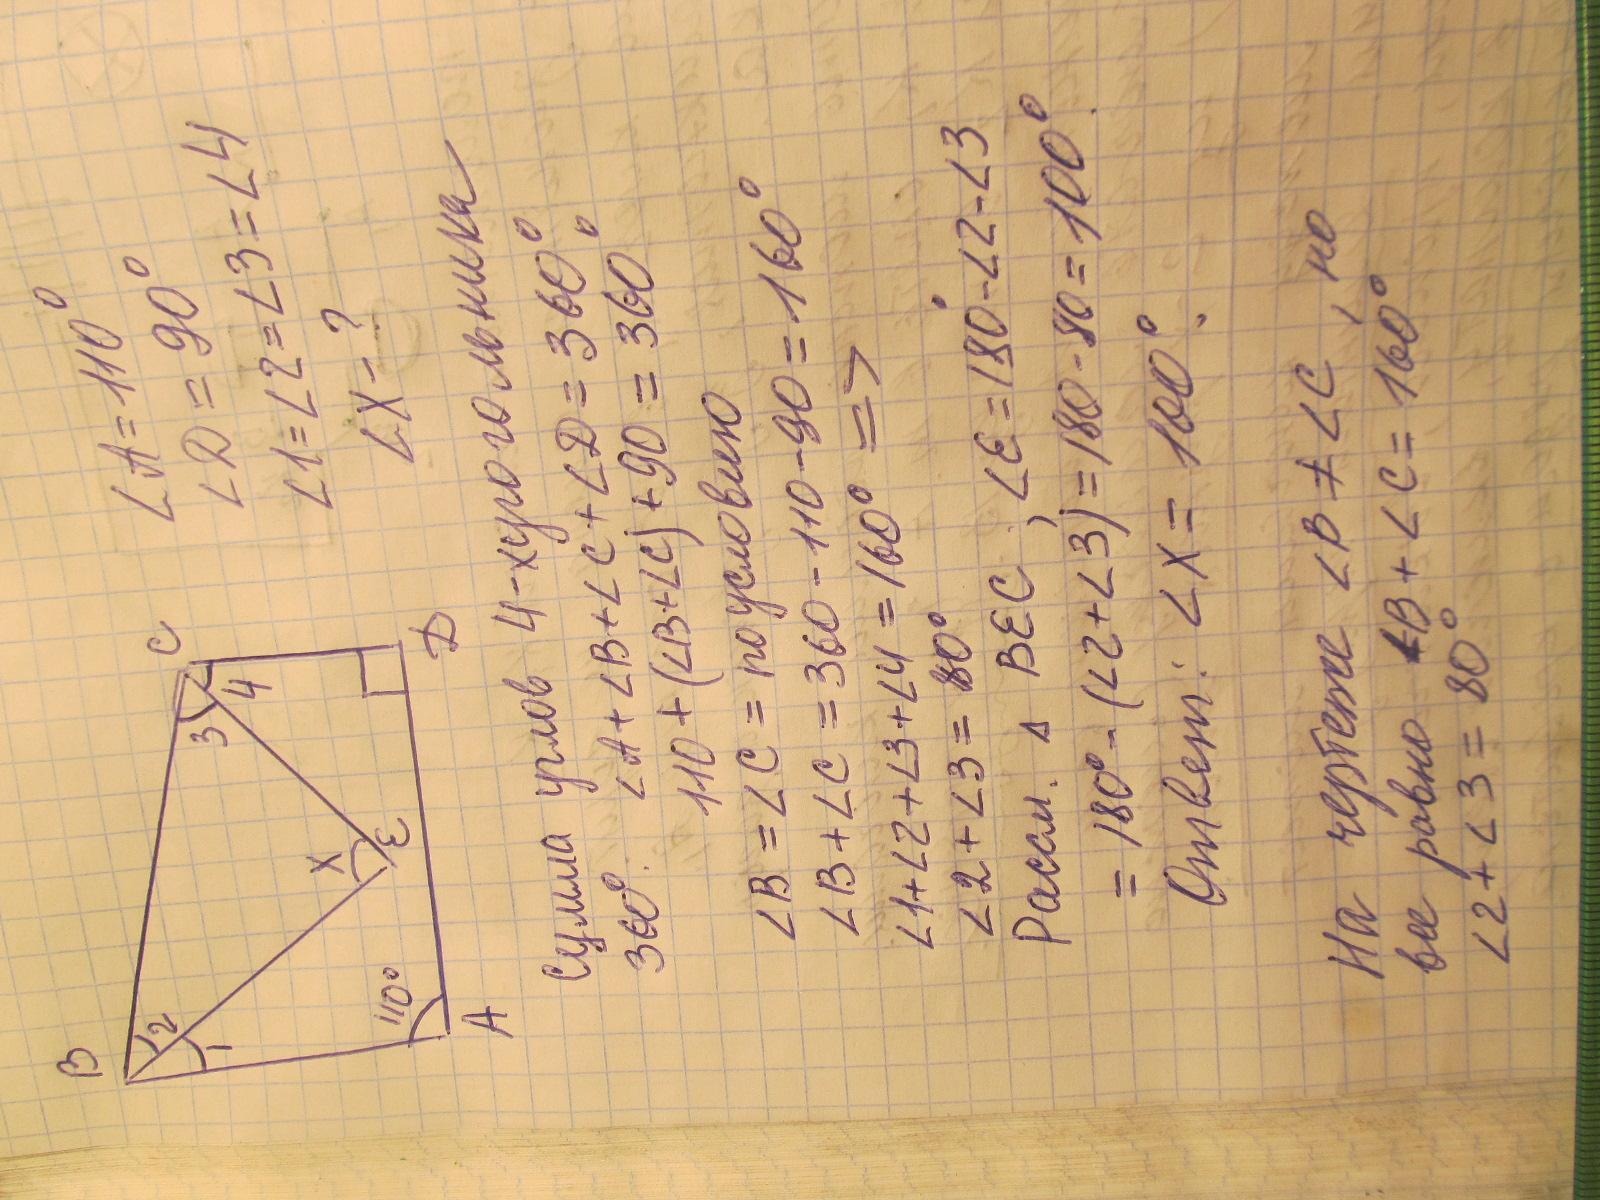 B
C
2
1
3
4
X
E
110°
A
D
∠A = 110°
∠D = 90°
∠1 = ∠2 = ∠3 = ∠4
∠X - ?
Сумма углов 4-хугольника
360°. ∠A + ∠B + ∠C + ∠D = 360°
110 + (∠B + ∠C) + 90 = 360°
∠B = ∠C = по условию
∠B + ∠C = 360 - 110 - 90 = 160°
∠1 + ∠2 + ∠3 + ∠4 = 160° =>
∠2 + ∠3 = 80°
Рассм. Δ BEC, ∠E = 180° - ∠2 - ∠3
= 180° - (∠2 + ∠3) = 180 - 80 = 100°.
Ответ: ∠X = 100°.
На чертеже ∠B ≠ ∠C, но
все равно ∠B + ∠C = 160°
∠2 + ∠3 = 80°